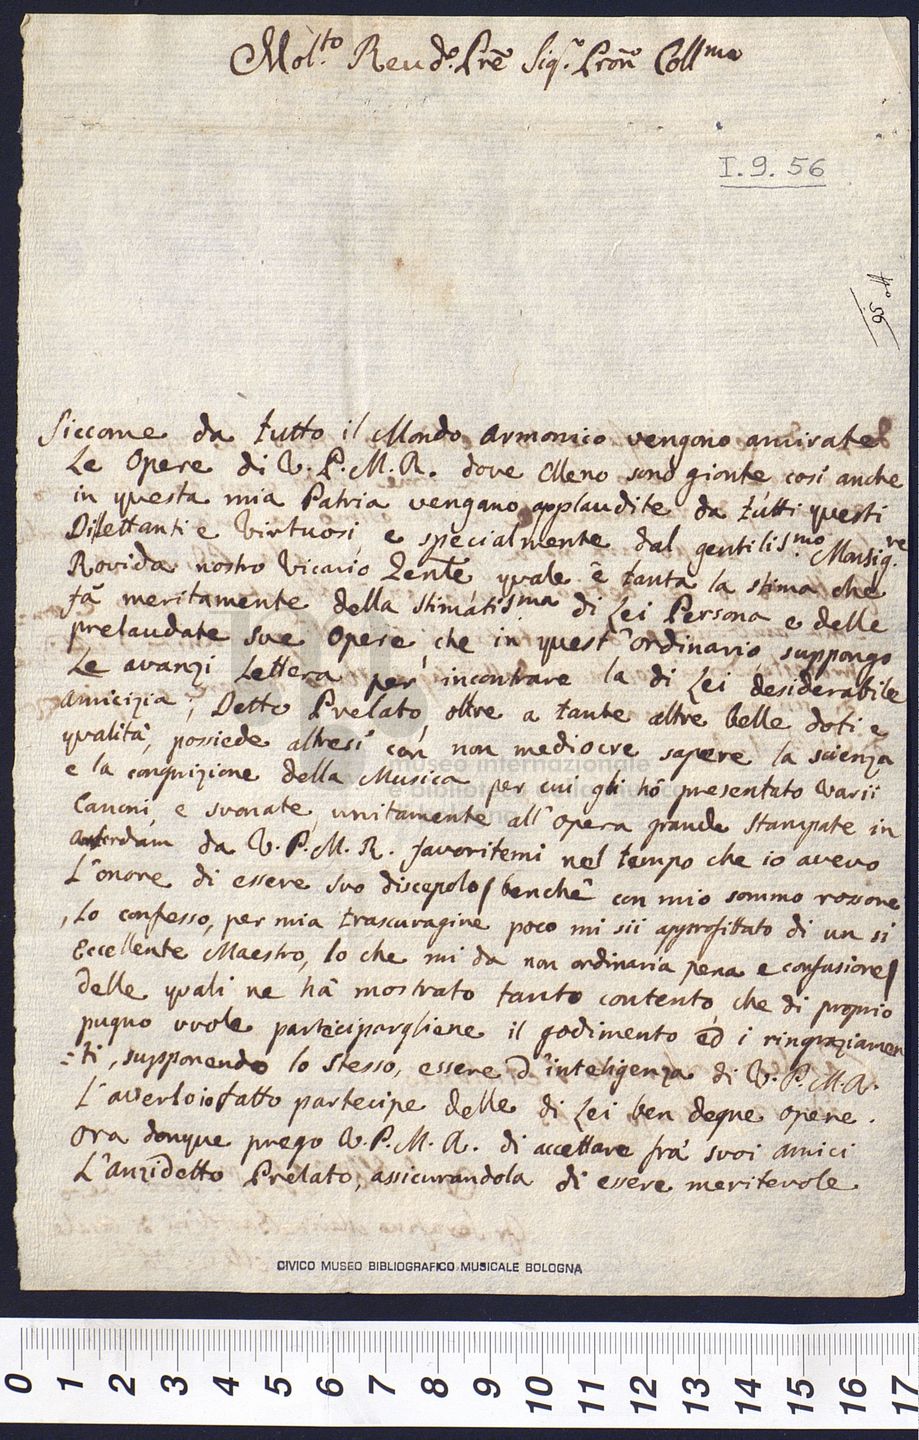 Mol.to Reud.o Pre Sig.r Pron Collmo
I.9.56
No 56
Siccome da tutto il Mondo Armonico vengono amirate
Le Opere di V. P. M. R. dove Elleno sono gionte così anche
in questa mia Patria vengano applaudite da tutti questi
Dilettanti e Virtuosi, e specialmente dal gentilis.mo Monsig.re
Rovida nostro Vicario Gente quale è tanta la stima che
fà meritamente della stimatisma di Lei Persona e delle
prelaudate sue Opere che in quest'ordinario suppongo
Le avanzi Lettera per incontrare la di Lei desiderabile
amicizia; Detto Prelato, oltre a tante altre belle doti e
qualità, possiede altresì con non mediocre sapere la scienza
e la cognizione della Musica per cui gli hò presentato varii
Canoni, e suonate, unitamente all'opera grande stampate in
Amsterdam da V. P. M. R. favoritemi nel tempo che io avevo
L'onore di essere suo discepolo (benchè con mio sommo rossore
, Lo confesso, per mia trascuragine poco mi sii approfittato di un si
Eccellente Maestro, lo che mi da non ordinaria pena e confusione)
delle quali ne hà mostrato tanto contento, che di proprio
pugno vuole partecipargliene il godimento ed i ringraziamen
=ti, supponendo lo stesso, essere d'inteligenza di V. P. M. R.
L'averloiofatto partecipe delle di Lei ben degne opere.
Ora donque prego V. P. M. R. di accettare frà suoi amici
L'anzidetto Prelato, assicurandola di essere meritevole
CIVICO MUSEO BIBLIOGRAFICO MUSICALE BOLOGNA
museo internazionale
e biblioteca della musica
0 1 2 3 4 5 6 7 8 9 10 11 12 13 14 15 16 17